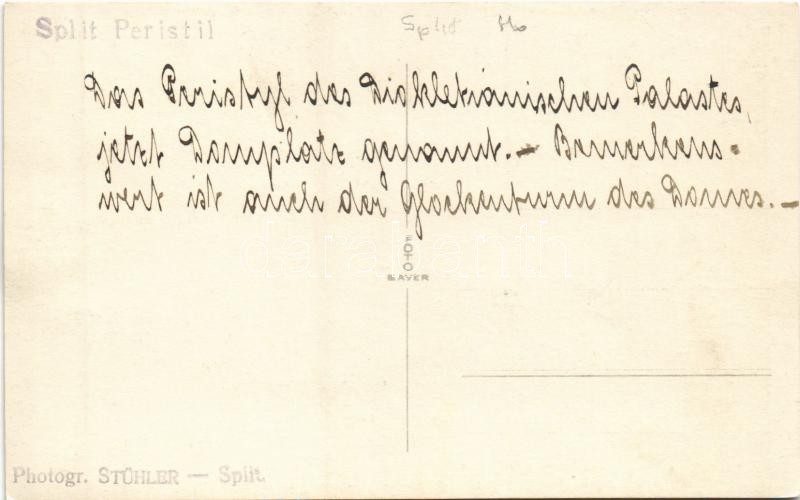 Split Peristil
Split
Das Peristyl des Diokletianischen Palastes,
jetzt Domplatz genannt. — Bemerkens-
wert ist auch der Glockenturm des Domes. —
FOTO
BAYER
Photogr. STÜHLER — Split.